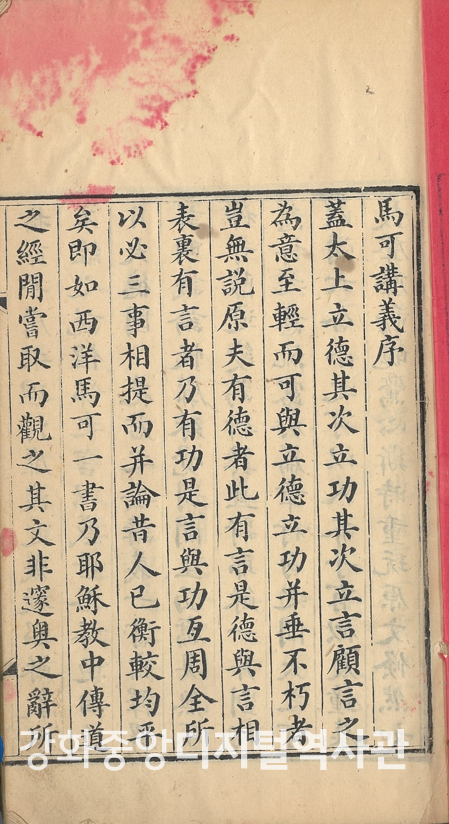 馬可講義序
蓋太上立德其次立功其次立言顧言之
為意至輕而可與立德立功并垂不朽者
豈無說原夫有德者此有言是德與言相
表裏有言者乃有功是言與功互周全所
以必三事相提而并論昔人已衡較均平
矣即如西洋馬可一書乃耶穌教中傳道
之經閒嘗取而觀之其文非邃奧之辭所
강화중앙디지털역사관